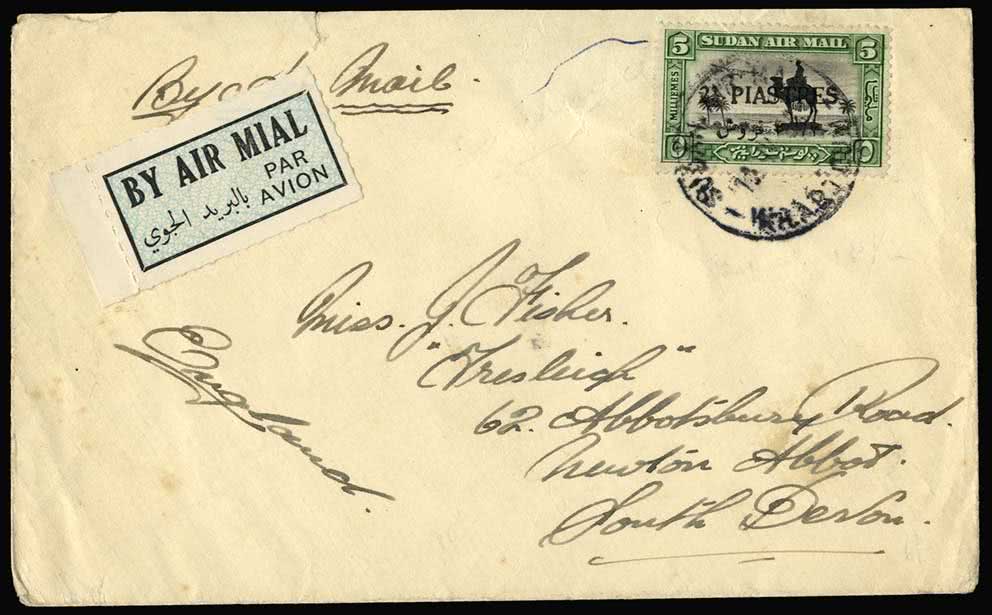 By Air Mail.
BY AIR MIAL
PAR
AVION
بالبريد الجوي
5 SUDAN AIR MAIL 5
MILLIEMES
2½ PIASTRES
قروش
KHARTOUM
Miss. J. Fisher.
"Tresleigh"
62. Abbotsbury Road.
Newton Abbot.
South Devon.
England.